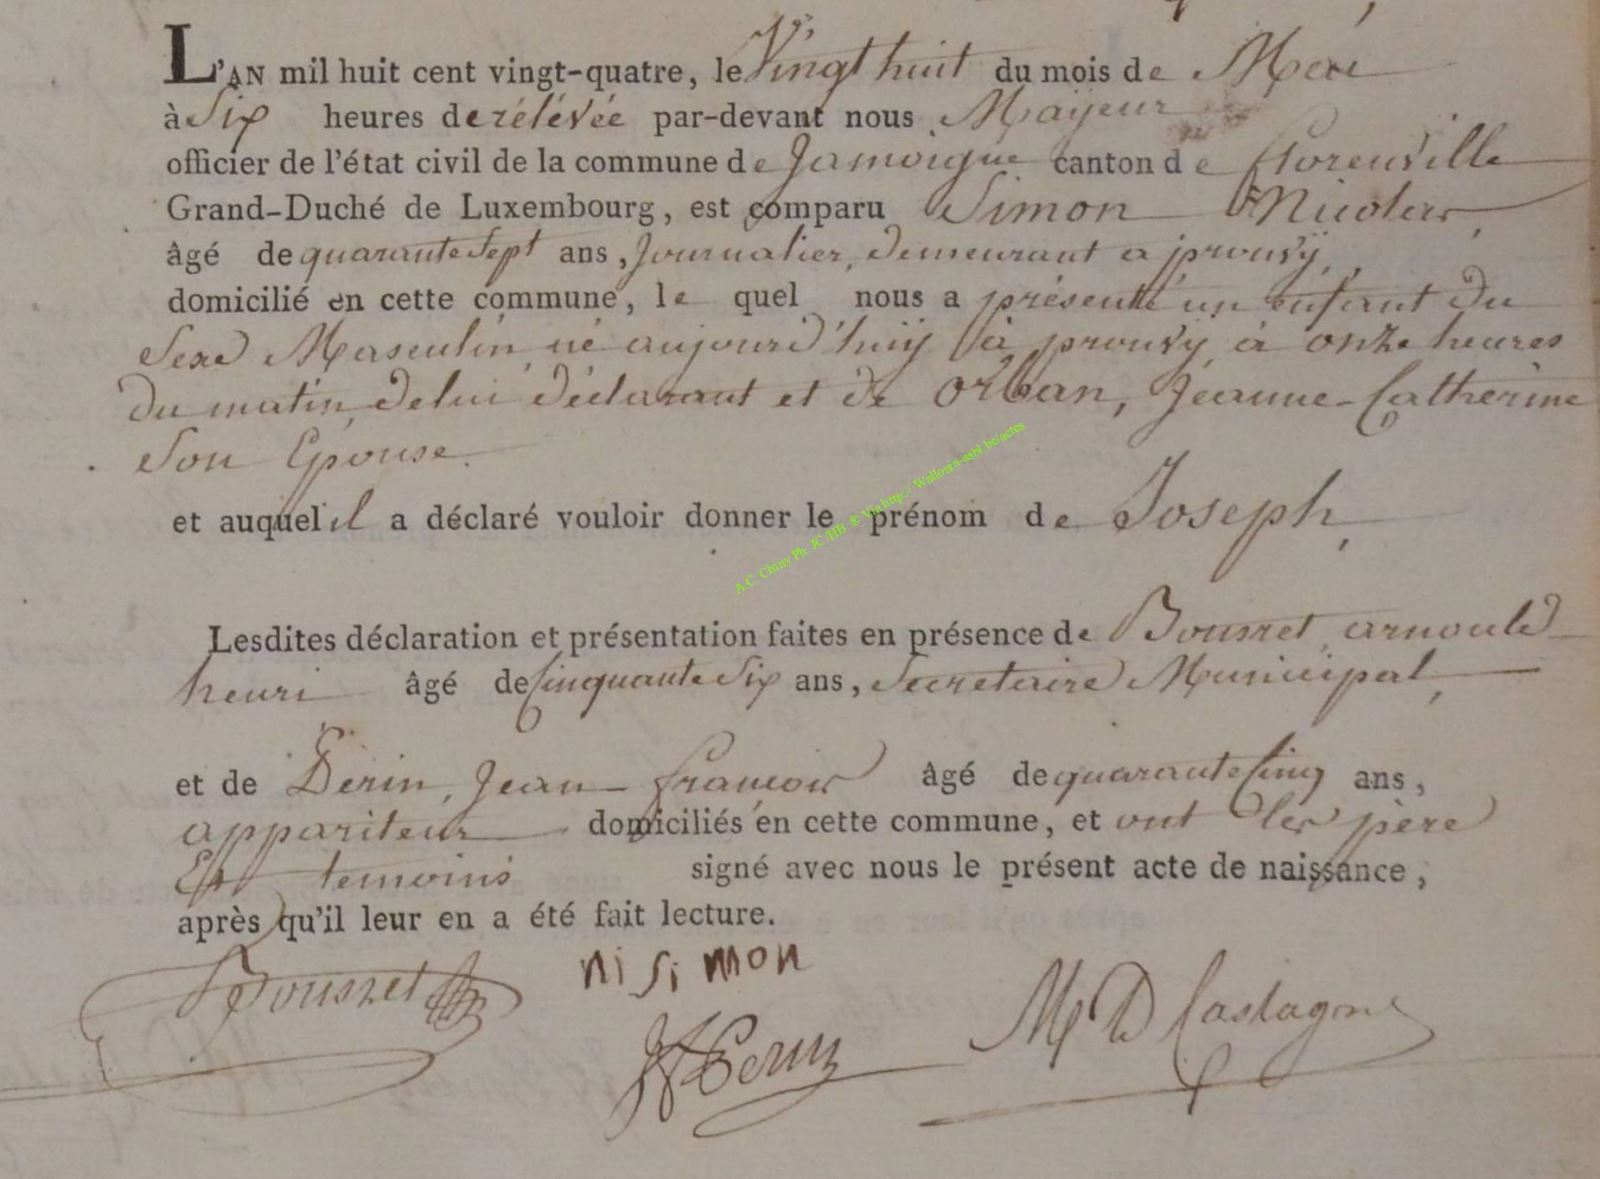 L'AN mil huit cent vingt-quatre, le Vingt huit du mois de Mai
à Six heures de rélévée par-devant nous Mayeur
officier de l'état civil de la commune de Jamoigne canton de florenville
Grand-Duché de Luxembourg, est comparu Simon Nicolas,
âgé de quarante Sept ans, Journalier, demeurant a prouvÿ,
domicilié en cette commune, le quel nous a présenté un enfant du
Sexe Masculin né aujourd'huÿ à prouvÿ à onze heures
du matin, de lui déclarant et de Orban, Jeanne-Catherine
Son Epouse.
et auquel il a déclaré vouloir donner le prénom de Joseph,
A.C. Chiny Ph JC/HB ® Via http:// Wallonia-asbl.be/actes
Lesdites déclaration et présentation faites en présence de Housset arnould
henri âgé de Cinquante Six ans, Secretaire Municipal,
et de Perin, Jean-francois âgé de quarante Cinq ans,
appariteur domiciliés en cette commune, et ont les père
Et temoins signé avec nous le présent acte de naissance,
après qu'il leur en a été fait lecture.
Housset ni Simon
JF Perin M D Castagne